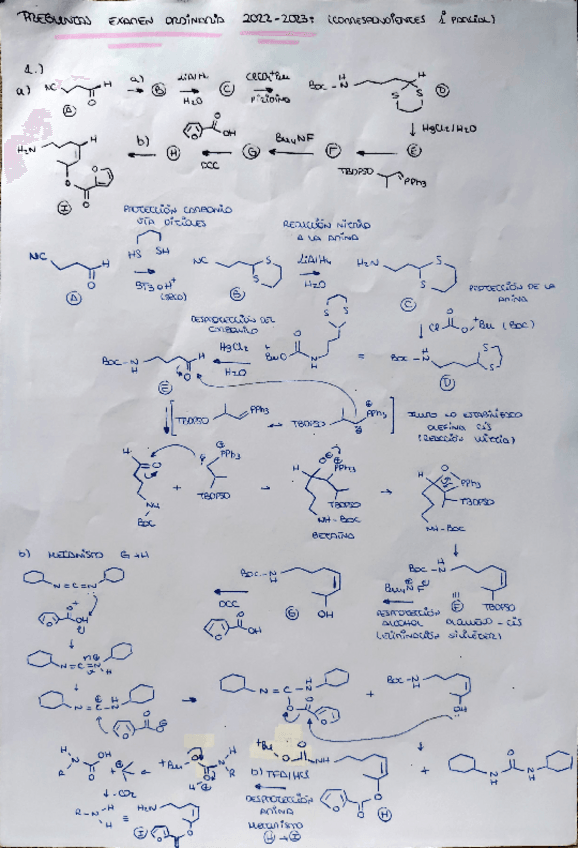 PREGUNTAS EXAMEN ORDINARIA 2022-2023: (CORRESPONDIENTES 1º PARCIAL)
1.)
a) NC H O A a) B LiAlH4 H2O C ClCO2tBu PIRIDINA Boc-N H S S H D
HgCl2/H2O
H2N H O O I b) H O OH DCC G Bu4NF F TBDPSO PPh3 E
PROTECCIÓN CARBONILO VÍA DITIOLES
REDUCCIÓN NITRILO A LA AMINA
NC H O A HS SH (SECO) NC S S B LiAlH4 H2O H2N S S C
PROTECCIÓN DE LA AMINA
Cl O O tBu (BOC)
DESPROTECCIÓN DEL CARBONILO
Boc-N H H O E HgCl2 H2O tBuO O N H S S = Boc-N H S S D
TBDPSO PPh3 ↔ TBDPSO PPh3
ILURO NO ESTABILIZADO
OLEFINA CIS
(REACCIÓN WITTIG)
H O NH Boc + PPh3 TBDPSO → H O PPh3 TBDPSO NH-BOC BETAINA → H O PPh3 TBDPSO NH-BOC
b) MECANISMO G→H
N=C=N
O OH
DCC
Boc-N H OH G
O OH
Bu4N F
DESPROTECCIÓN
ALCOHOL
(ELIMINACIÓN SILILÉTER)
Boc-N H TBDPSO F
ALQUENO-CIS
N=C=N H
N=C-N H O O → N=C-N H O O + Boc-N H OH
R N H O OH + tBu O O N H R
tBu O O NH O O H + N H O N H
b) TFA/HCl
DESPROTECCIÓN
AMINA
MECANISMO
H→I
-CO2
R-N H H ≡ H2N O O I